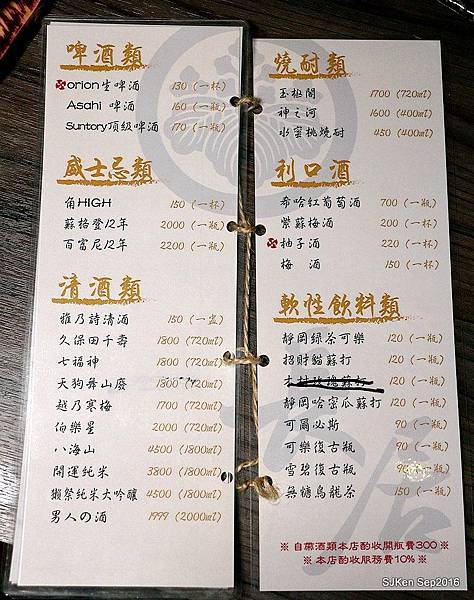 啤酒類
orion生啤酒 130 (一杯)
Asahi 啤酒 160 (一瓶)
Suntory頂級啤酒 170 (一瓶)
威士忌類
角HIGH 150 (一杯)
蘇格登12年 2000 (一瓶)
百富尼12年 2200 (一瓶)
清酒類
雅乃詩清酒 150 (一盅)
久保田千壽 1800 (720ml)
七福神 1800 (720ml)
天狗舞山廢 1800 (720ml)
越乃寒梅 1700 (720ml)
伯樂星 2000 (720ml)
八海山 4500 (1800ml)
開運純米 3800 (1800ml)
獺祭純米大吟釀 4500 (1800ml)
男人の酒 1999 (2000ml)
燒酎類
玉極閣 1700 (720ml)
神之河 1600 (400ml)
水蜜桃燒酎 450 (400ml)
利口酒
希哈紅葡萄酒 700 (一瓶)
紫蘇梅酒 200 (一杯)
柚子酒 220 (一杯)
梅 酒 150 (一杯)
軟性飲料類
靜岡綠茶可樂 120 (一瓶)
招財貓蘇打 120 (一瓶)
木村玫瑰蘇打 120 (一瓶)
靜岡哈密瓜蘇打 120 (一瓶)
可爾必斯 90 (一瓶)
可樂復古瓶 90 (一瓶)
雪碧復古瓶 90 (一瓶)
無糖烏龍茶 150 (一瓶)
※ 自帶酒類本店酌收開瓶費300 ※
※ 本店酌收服務費10% ※
店
SJKen Sep2016